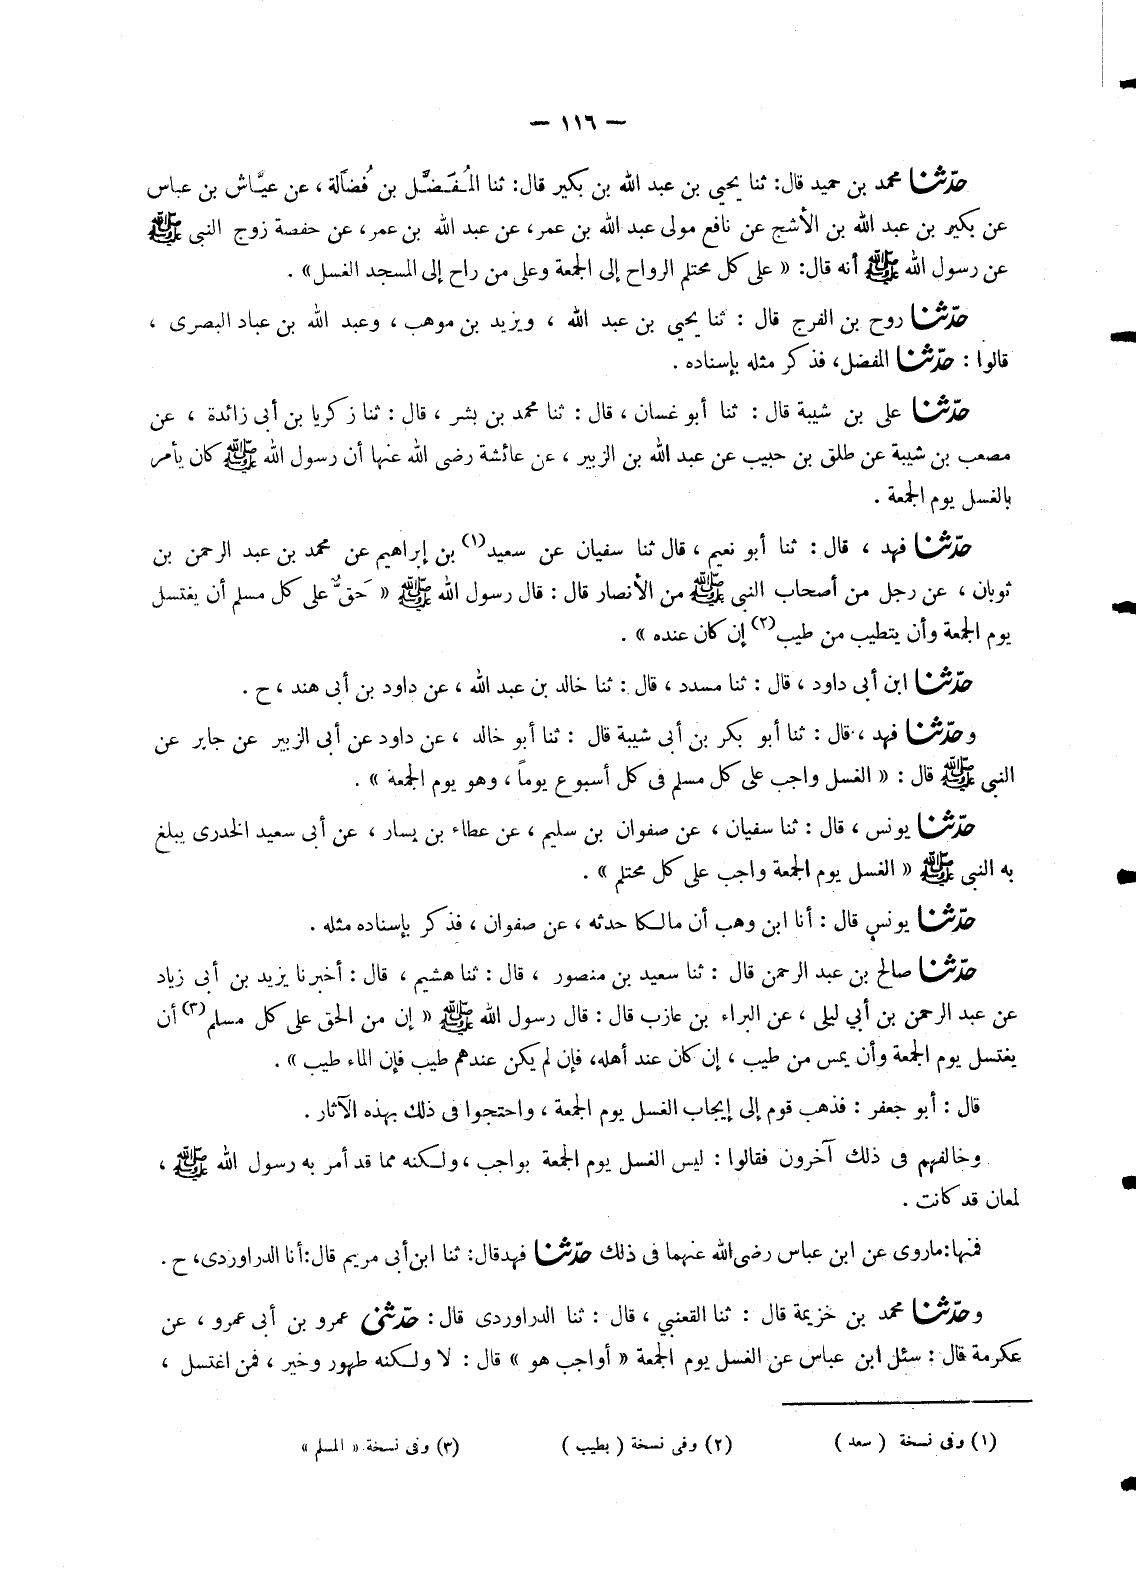 — ١١٦ —
حدّثنا محمد بن حميد قال: ثنا يحيى بن عبد الله بن بكير قال: ثنا المُفَضَّل بن فُضَالة ، عن عيَّاش بن عباس
عن بكير بن عبد الله بن الأشج عن نافع مولى عبد الله بن عمر، عن عبد الله بن عمر، عن حفصة زوج النبى ﷺ
عن رسول الله ﷺ أنه قال: « على كل محتلم الرواح إلى الجمعة وعلى من راح إلى المسجد الغسل» .
حدّثنا روح بن الفرج قال : ثنا يحيى بن عبد الله ، ويزيد بن موهب ، وعبد الله بن عباد البصرى ،
قالوا : حدّثنا المفضل، فذكر مثله بإسناده .
حدّثنا على بن شيبة قال : ثنا أبو غسان ، قال : ثنا محمد بن بشر ، قال : ثنا زكريا بن أبى زائدة ، عن
مصعب بن شيبة عن طلق بن حبيب عن عبد الله بن الزبير ، عن عائشة رضى الله عنها أن رسول الله ﷺ كان يأمر
بالغسل يوم الجمعة .
حدّثنا فهد ، قال : ثنا أبو نعيم ، قال ثنا سفيان عن سعيد(١) بن إبراهيم عن محمد بن عبد الرحمن بن
ثوبان ، عن رجل من أصحاب النبى ﷺ من الأنصار قال : قال رسول الله ﷺ « حَقٌّ على كل مسلم أن يغتسل
يوم الجمعة وأن يتطيب من طيب(٢) إن كان عنده » .
حدّثنا ابن أبى داود ، قال : ثنا مسدد ، قال : ثنا خالد بن عبد الله ، عن داود بن أبى هند ، ح .
وحدّثنا فهد ، قال : ثنا أبو بكر بن أبى شيبة قال : ثنا أبو خالد ، عن داود عن أبى الزبير عن جابر عن
النبى ﷺ قال : « الغسل واجب على كل مسلم فى كل أسبوع يوماً ، وهو يوم الجمعة » .
حدّثنا يونس ، قال : ثنا سفيان ، عن صفوان بن سليم ، عن عطاء بن يسار ، عن أبى سعيد الخدرى يبلغ
به النبى ﷺ « الغسل يوم الجمعة واجب على كل محتلم » .
حدّثنا يونس قال : أنا ابن وهب أن مالكا حدثه ، عن صفوان ، فذكر بإسناده مثله .
حدّثنا صالح بن عبد الرحمن قال : ثنا سعيد بن منصور ، قال : ثنا هشيم ، قال : أخبرنا يزيد بن أبى زياد
عن عبد الرحمن بن أبي ليلى ، عن البراء بن عازب قال : قال رسول الله ﷺ « إن من الحق على كل مسلم(٣) أن
يغتسل يوم الجمعة وأن يمس من طيب ، إن كان عند أهله، فإن لم يكن عندهم طيب فإن الماء طيب » .
قال : أبو جعفر : فذهب قوم إلى إيجاب الغسل يوم الجمعة ، واحتجوا فى ذلك بهذه الآثار .
وخالفهم فى ذلك آخرون فقالوا : ليس الغسل يوم الجمعة بواجب ، ولكنه مما قد أمر به رسول الله ﷺ ،
لمعان قد كانت .
فمنها: ماروى عن ابن عباس رضى الله عنهما فى ذلك حدّثنا فهدقال: ثنا ابن أبى مريم قال: أنا الدراوردى، ح .
وحدّثنا محمد بن خزيمة قال : ثنا القعنبي ، قال : ثنا الدراوردى قال : حدّثنى عمرو بن أبى عمرو ، عن
عكرمة قال : سئل ابن عباس عن الغسل يوم الجمعة « أواجب هو » قال : لا ولكنه طهور وخير ، فمن اغتسل ،
(١) وفى نسخة ( سعد ) (٢) وفى نسخة ( بطيب ) (٣) وفى نسخة « المسلم »